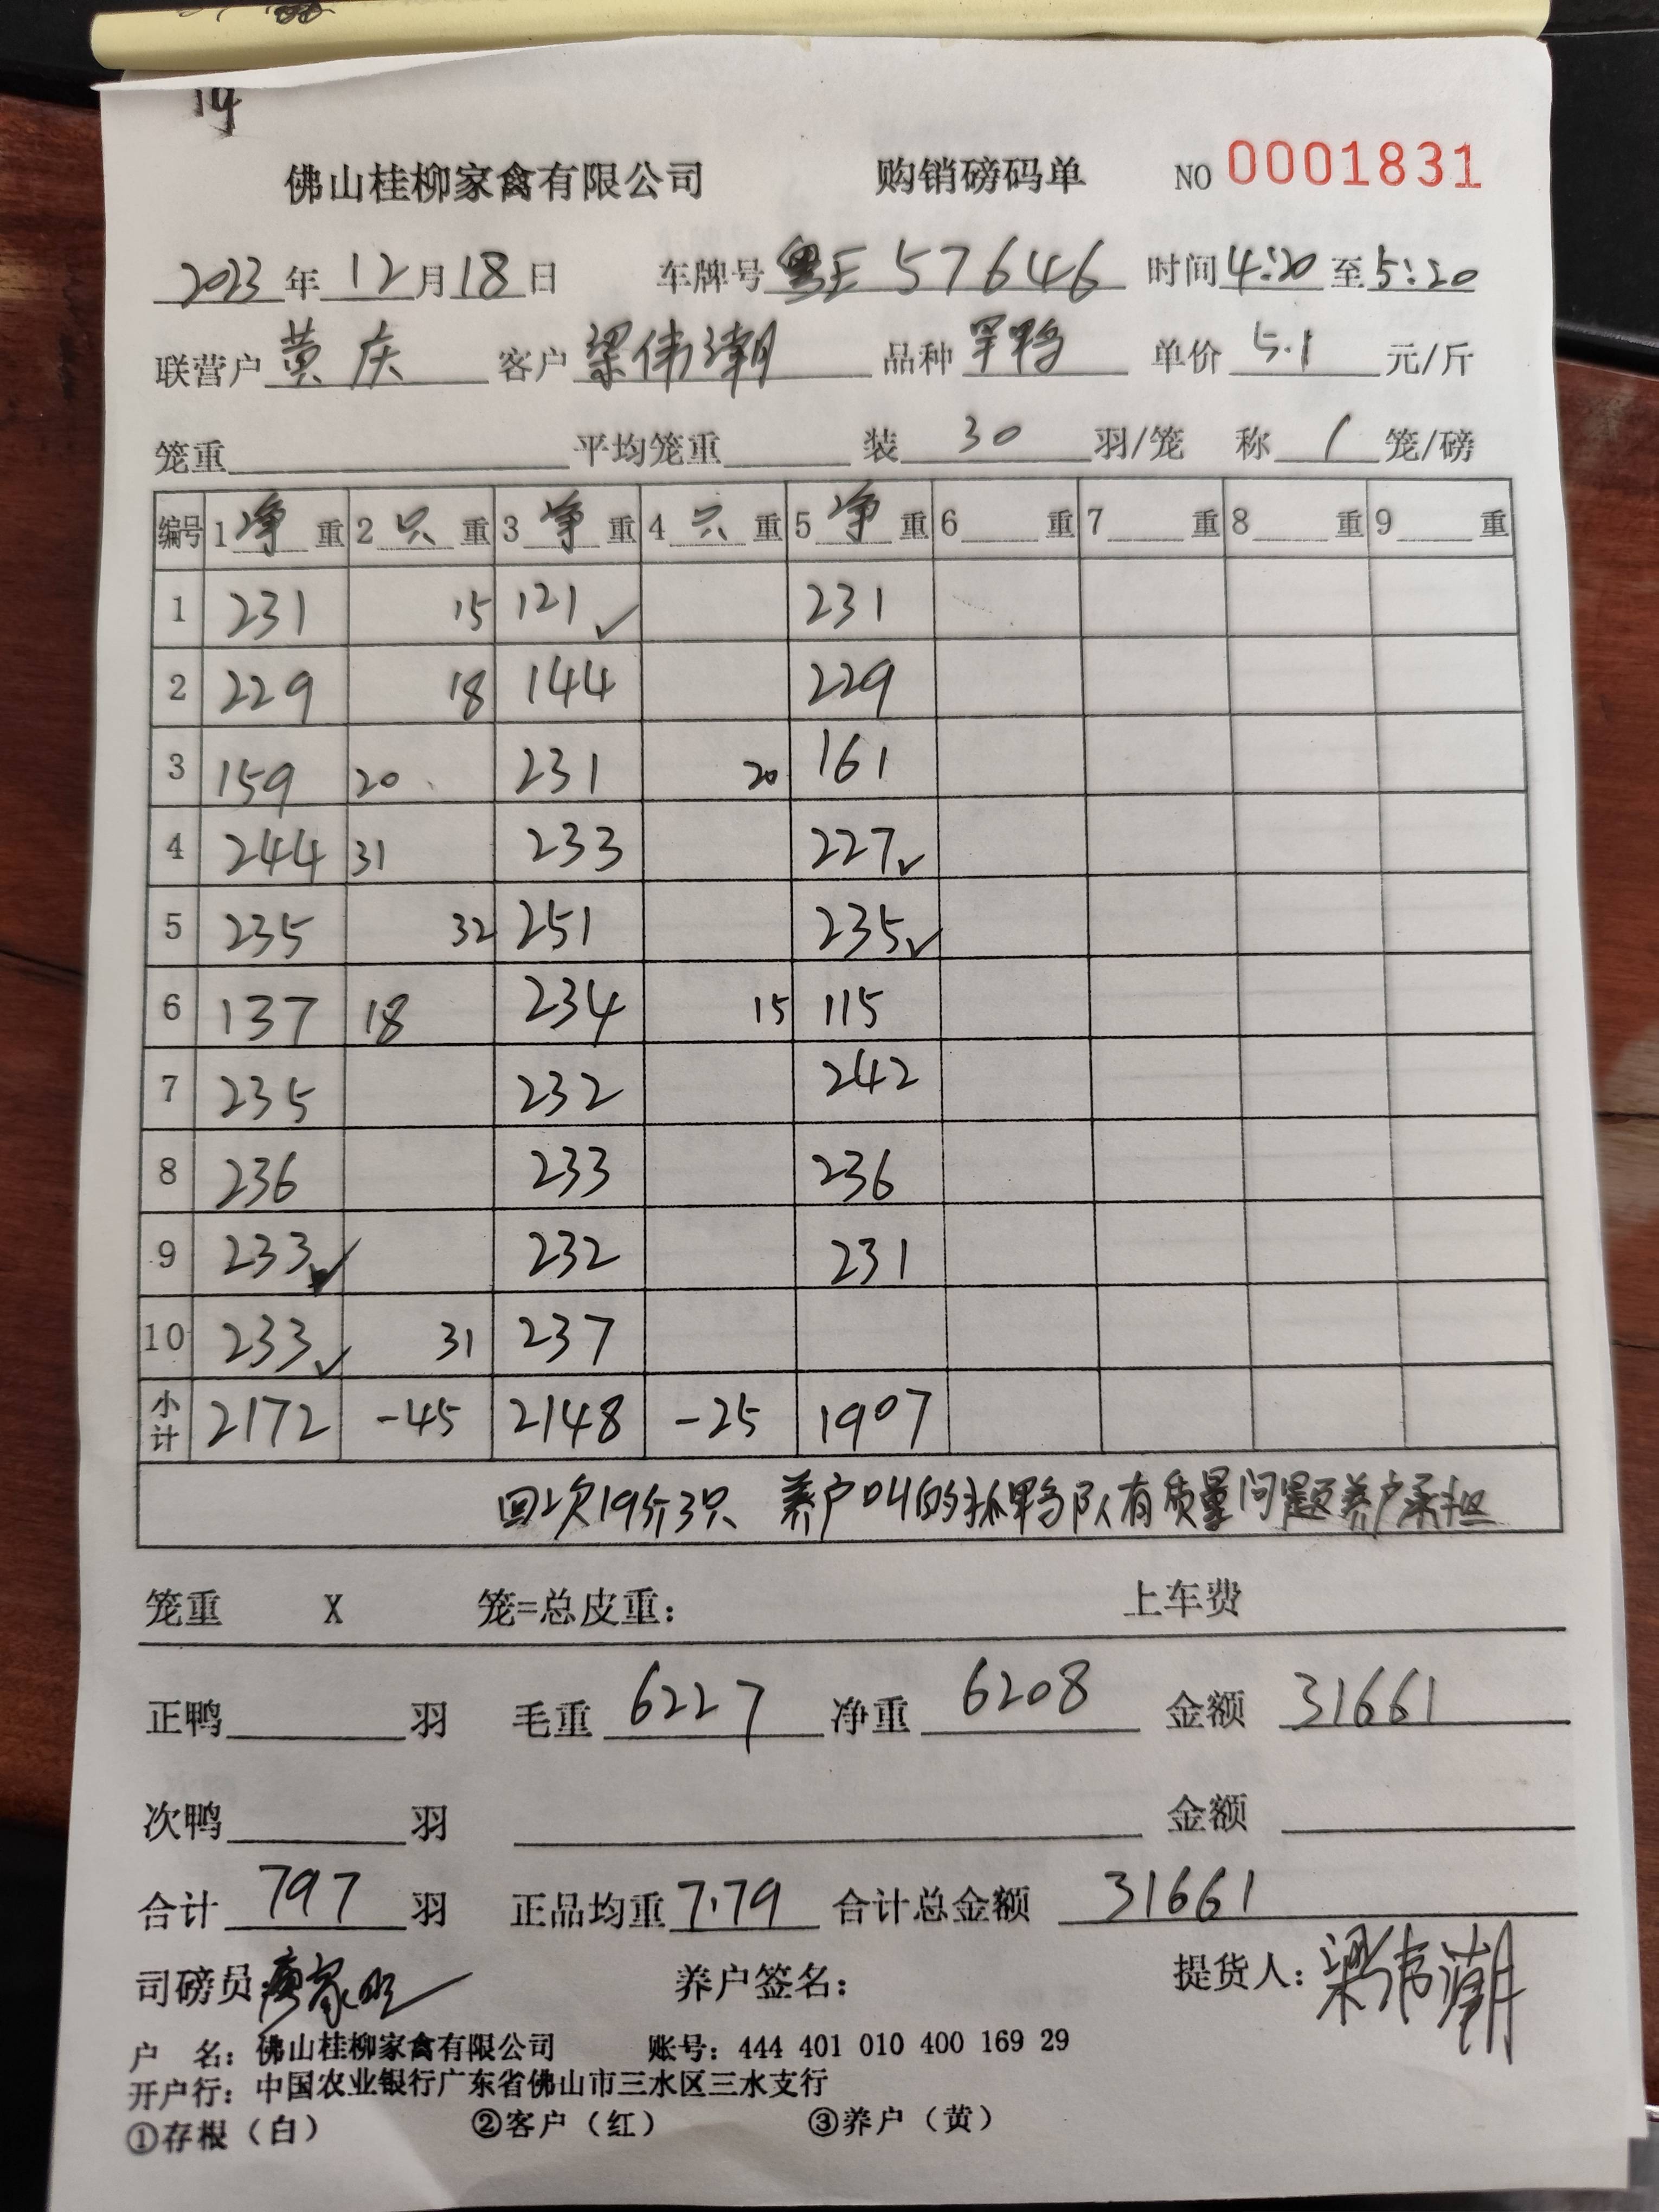 19
佛山桂柳家禽有限公司 购销磅码单 NO 0001831
2023 年 12 月 18 日 车牌号 粤E 57646 时间 4:20 至 5:20
联营户 莫庆 客户 梁伟潮 品种 罕鸭 单价 5.1 元/斤
笼重 平均笼重 装 30 羽/笼 称 1 笼/磅
编号 1 净 重 2 只 重 3 净 重 4 只 重 5 净 重 6 重 7 重 8 重 9 重
1 231 15 121 ✓ 231
2 229 18 144 229
3 159 20 231 20 161
4 244 31 233 227 ✓
5 235 32 251 235 ✓
6 137 18 234 15 115
7 235 232 242
8 236 233 236
9 233 ✓ 232 231
10 233 ✓ 31 237
小计 2172 -45 2148 -25 1907
回次19斤3只 养户叫的抓鸭队有质量问题养户承担
笼重 X 笼=总皮重: 上车费
正鸭 羽 毛重 6227 净重 6208 金额 31661
次鸭 羽 金额
合计 797 羽 正品均重 7.79 合计总金额 31661
司磅员: 养户签名: 提货人: 梁伟潮
户 名: 佛山桂柳家禽有限公司 账号: 444 401 010 400 169 29
开户行: 中国农业银行广东省佛山市三水区三水支行
①存根（白） ②客户（红） ③养户（黄）